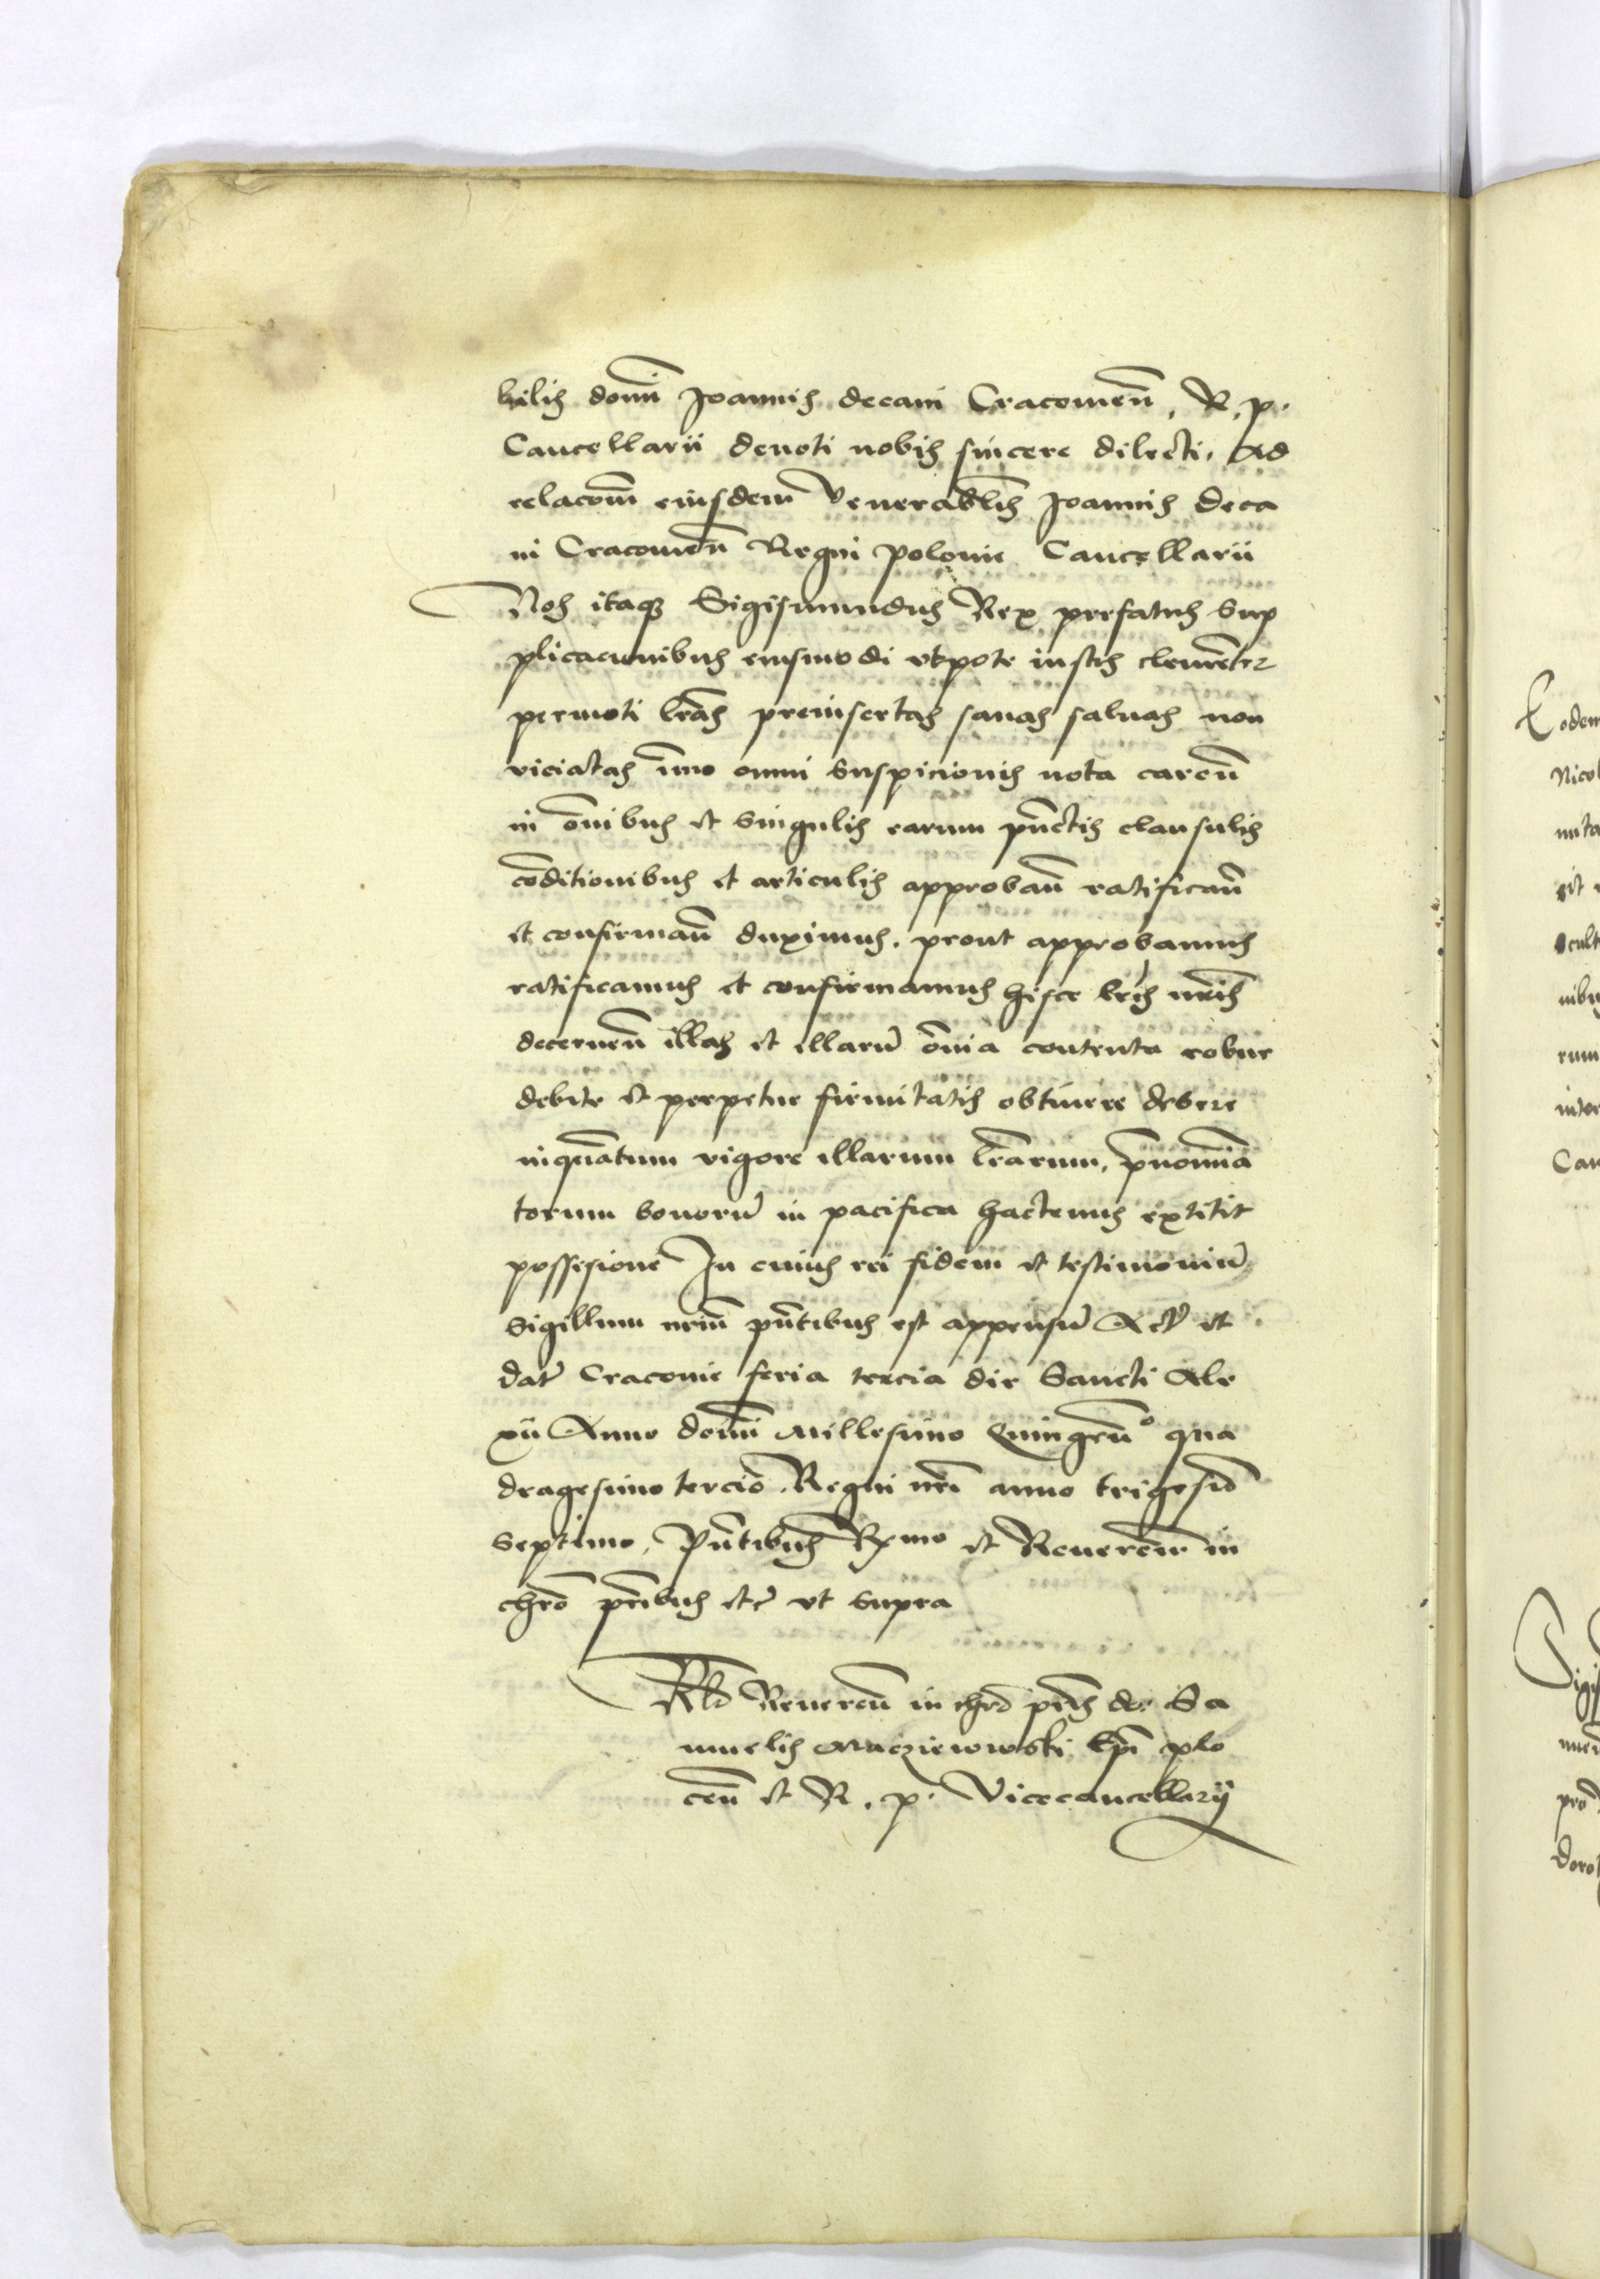 bilis domĩ Joannis decani Cracouieñ, R. p.
Cancellarii deuoti nobis sincere dilecti. Ad
relacõm eiusdem Venerabl̃is Joannis deca
ni Cracouieñ Regni polonie Cancellarii
Nos itaq3 Sigismundus Rex prefatus sup
plicacionibus eiusmodi vtpote iustis clementer
permoti l̃ras preinsertas sanas saluas non
viciatas ĩmo omni suspicionis nota careñ
in õnibus et singulis earum pũctis clausulis
cõditionibus et articulis approbañ ratificañ
et confirmañ duximus. prout approbamus
ratificamus et confirmamus hisce l̃ris nr̃is
decerneñ illas et illarũ õnia contenta robur
debite et perpetue firmitatis obtinere debere
inquãtum vigore illarum l̃rarum, p̃nomina
torum bonorũ in pacifica hactenus extitit
possesione In cuius rei fidem et testimoniũ
sigillum nr̃um p̃ntibus est appensũ Act̃ et
dat̃ Cracouie feria tercia die Sancti Ale
xii Anno domĩ Millesimo Quingeñº qua
dragesimo tercio. Regni nr̃i anno trigesiõ
septimo. Pñtibus Rx̃mo et Reuerẽn in
chr̃o pr̃ibus etc̃ vt supra
Rl̃o Reuereñ in chr̃o pr̃is do: Sa
muelis Macziewwski Ep̃i plo
ceñ et R. p. Vicecancellarij
Eodem